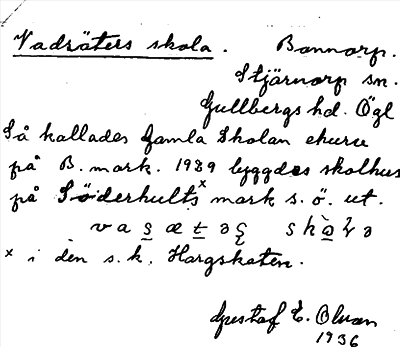 Vadräters skola. Bannorp.
Stjärnorp sn.
Gullbergs hd. Ögl
Så kallades Gamla Skolan ehuru
på B. mark. 1989 byggdes skolhus
på Söderhults x mark s. ö. ut.
x i den s.k. Hargskaten.
Gustaf E. Olsson
1936